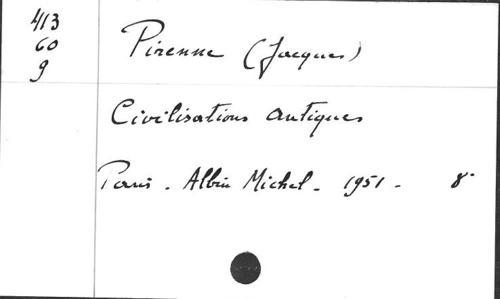 413
60
9
Pirenne (Jacques)
Civilisations antiques
Paris. Albin Michel. 1951. 8°